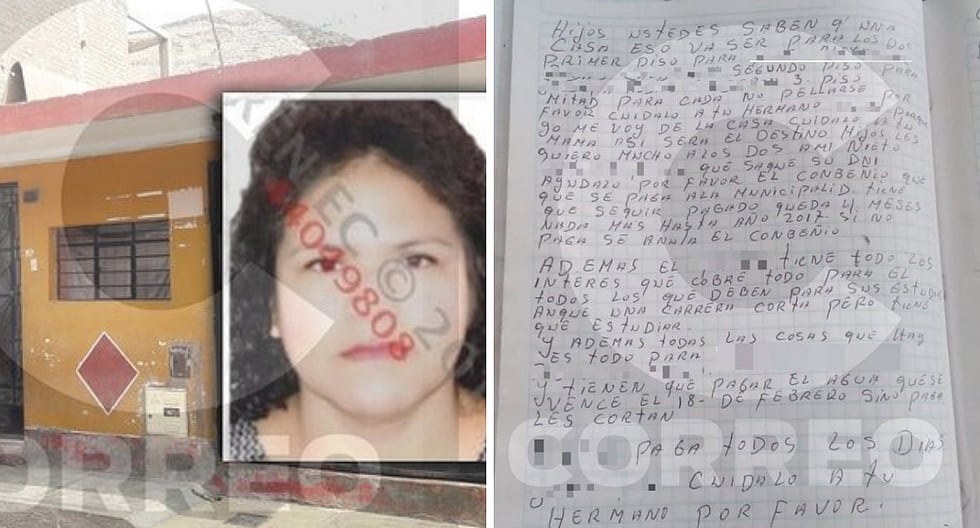 RENIEC © 20
44079808
CORREO
Hijos ustedes saben q' una
casa eso va ser para los dos
primer piso para
segundo piso para
3 piso
mitad para cada no pelearse por
favor cuidalo a tu hermano porque
yo me voy de la casa cuidalo a tu
mama asi sera el destino hijos les
quiero mucho alos dos ami nieto
que saque su DNI
ayudalo por favor el conbenio que
que se paga ala municipalid. tiene
que seguir pagado queda 4 meses
nada mas hasta año 2017 si no
paga se anula el conbenio
ademas el tiene todo los
interes que cobre todo para el
todos los que deben para sus estudios
anque una carrera corta pero tiene
que estudiar.
y ademas todas las cosas que hay
es todo para
y tienen que pagar el agua quese
vence el 18- de febrero sino paga
les cortan
paga todos los dias
cuidalo a tu
hermano por favor.
CORREO